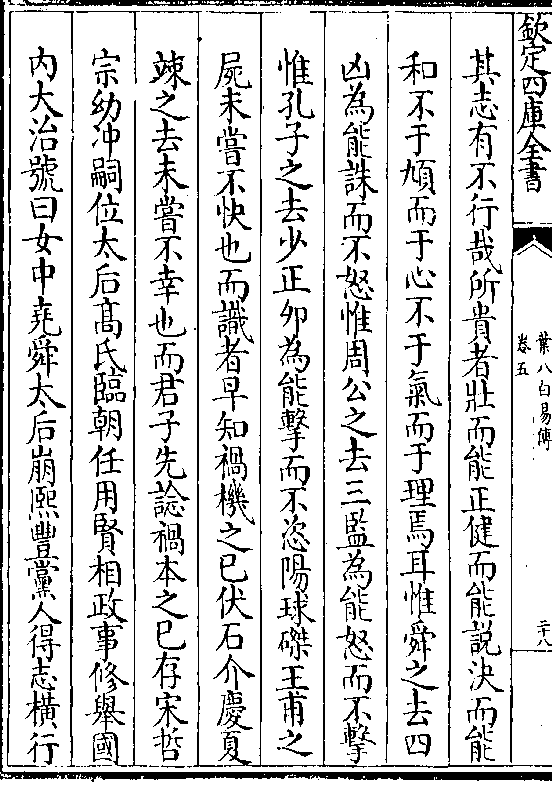 欽定四庫全書
葉八白易傳
卷五
二十八
其志有不行哉所貴者壯而能正健而能説決而能
和不于頄而于心不于氣而于理焉耳惟舜之去四
凶為能誅而不怒惟周公之去三監為能怒而不擊
惟孔子之去少正卯為能擊而不恣陽球磔王甫之
屍未嘗不快也而識者早知禍機之已伏石介慶夏
竦之去未嘗不幸也而君子先諗禍本之已存宋哲
宗幼冲嗣位太后髙氏臨朝任用賢相政事修舉國
内大治號曰女中堯舜太后崩熙豐黨人得志橫行